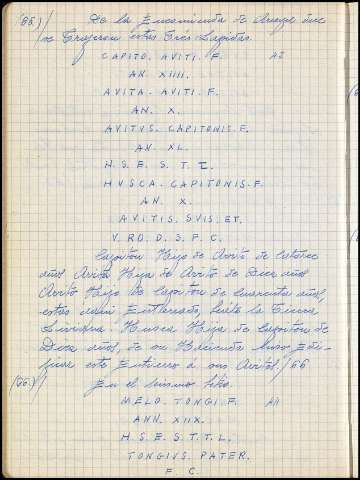 (65) / De la Encomienda de dice
se Trajeron estas tres Lapidas.
CAPITO. AVITI. F. A2
AN. XIIII.
AVITA. AVITI. F.
AN. X.
AVITVS. CAPITONIS. F.
AN. XL.
H. S. E. S. T. T. L.
HVSCA. CAPITONIS. F.
AN. X.
AVITIS. SVIS. ET.
V. RO. D. S. F. C.
Capiton Hijo de Avito de Catorce
años Avita Hija de Avito de Diez años
Avito Hijo de Capiton de Cuarenta años,
estos estan Enterrados, Seate la Tierra
Liviana. Husca Hija de Capiton de
Diez años, de su Hacienda hizo Edi-
ficar este Entierro à sus Avitos. / 66
(66) / En el mismo sitio.
MELO. TONGI. F. A11
ANN. XIIX.
H. S. E. S. T. T. L.
TONGIVS. PATER.
F. C.